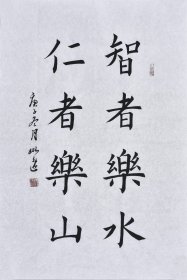 智者樂水
仁者樂山
庚子冬月